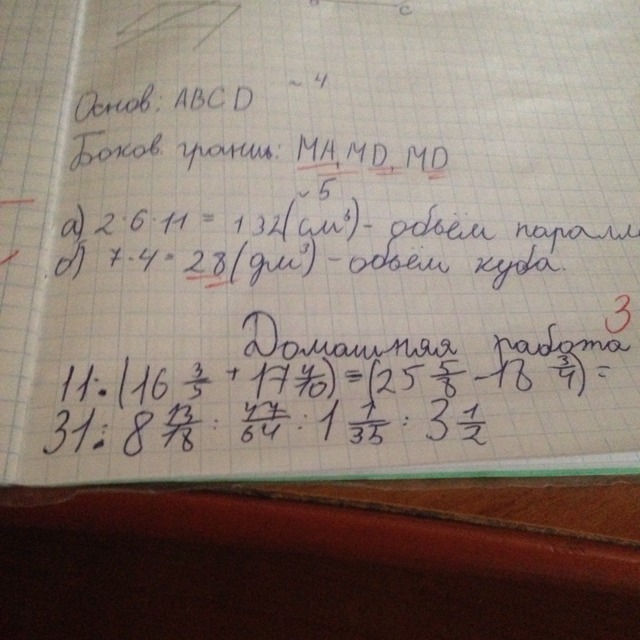 C
~ 4
Основ: ABCD
Боков. границ: MA, MD, MD
~ 5
а) 2·6·11 = 132(см³) - объём паралле
б) 7·4 = 28(дм³) - объём куба.
3
Домашняя работа
11: (16 3/5 + 17 4/10) = (25 5/8 - 18 3/4) =
31: 8 13/18 : 77/64 : 1 1/35 : 3 1/2